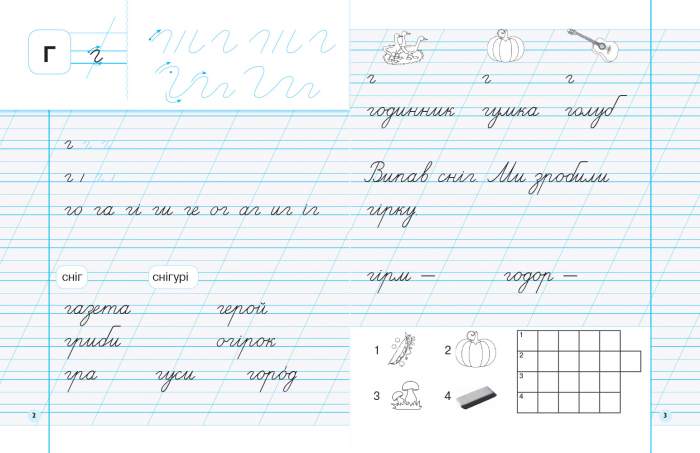 г г
г
г
го га гі ги ге ог аг иг іг
сніг снігурі
газета герой
гриби огірок
гра гуси горо́д
2
г г г
годинник гумка голуб
Випав сніг. Ми зробили
гірку.
гірм — годор —
1 2 1
2
3 4 3
4
3